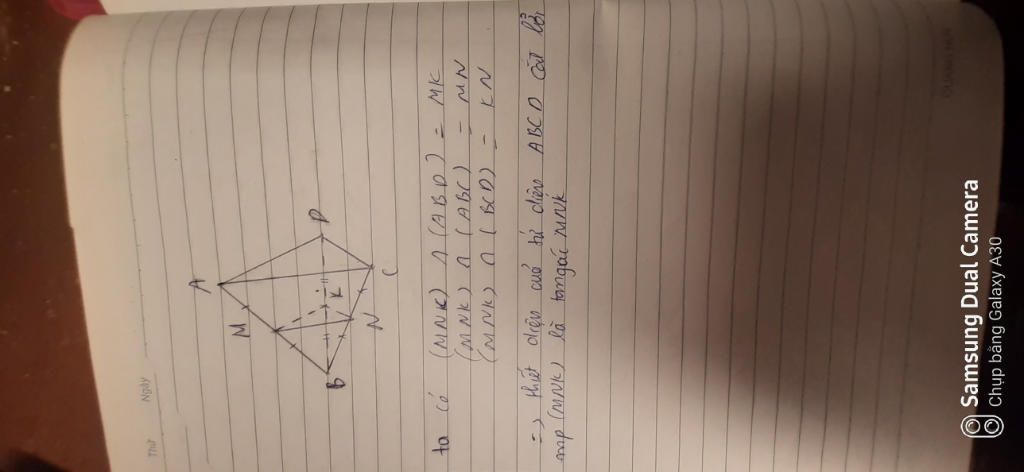 Thứ
Ngày
A
M
D
K
B
N
C
ta có (MNK) ∩ (ABD) = MK
(MNK) ∩ (ABC) = MN
(MNK) ∩ (BCD) = KN
=> thiết diện cuả tứ diện ABCD cắt bởi
mp (MNK) là tamgiác MNK
Samsung Dual Camera
Chụp bằng Galaxy A30